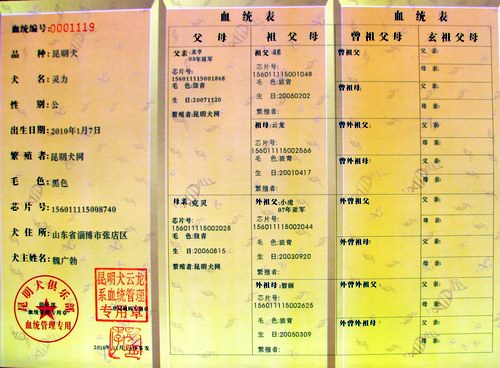 血统编号:0001119
品 种:昆明犬
犬 名:灵力
性 别:公
出生日期:2010年1月7日
繁 殖 者:昆明犬网
毛 色:黑色
芯 片 号:156011115008740
犬 住 所:山东省淄博市张店区
犬主姓名:魏广勃
昆明犬俱乐部
血统管理专用章
血统管理专用
昆明犬云龙
系血统管理
专用章
血统表
父母
祖父母
父亲:
00年亚军
芯片号:
156011115001868
毛 色:狼青
生 日:20071120
繁殖者:昆明犬网
祖父:
芯片号:
156011115001048
毛 色:狼青
生 日:20050202
繁殖者:
祖母:云龙
芯片号:
156011115002566
毛 色:狼青
生 日:20010417
繁殖者:
母亲:克灵
芯片号:
156011115002028
毛 色:狼青
生 日:20060815
繁殖者:昆明犬网
外祖父:小虎
07年亚军
芯片号:
156011115002044
毛 色:狼青
生 日:20030920
繁殖者:
外祖母:智丽
芯片号:
156011115002625
毛 色:狼青
生 日:20050309
繁殖者:
血统表
曾祖父母
玄祖父母
曾祖父:
父亲:
母亲:
曾祖母:
父亲:
母亲:
曾外祖父:
父亲:
母亲:
曾外祖母:
父亲:
母亲:
外曾祖父:
父亲:
母亲:
外曾祖母:
父亲:
母亲:
外曾外祖父:
父亲:
母亲:
外曾外祖母:
父亲:
母亲: